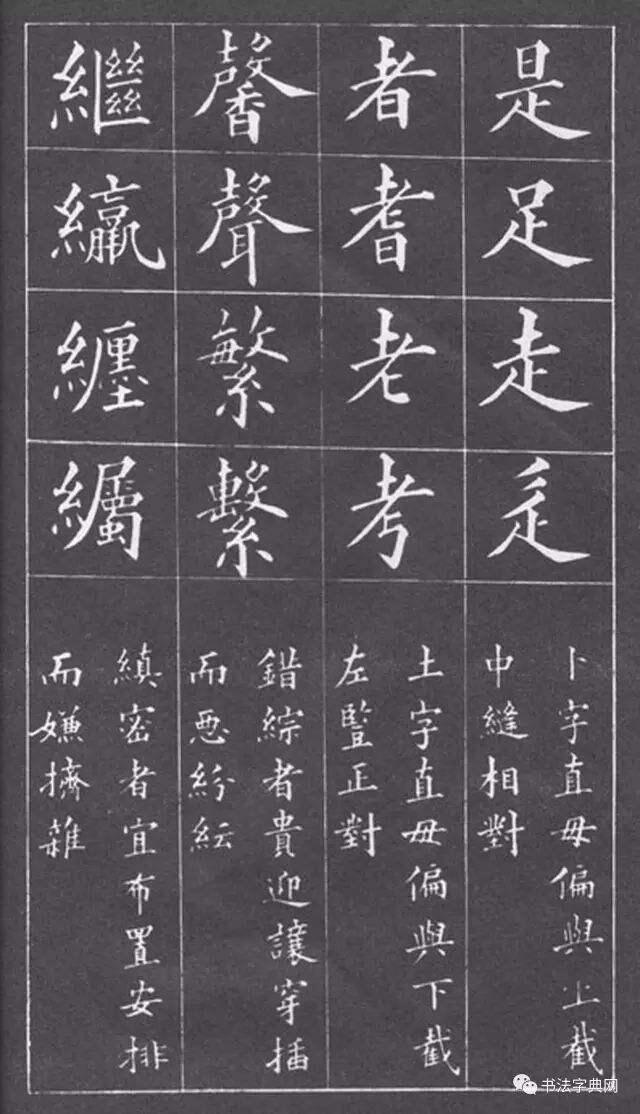 是
足
走
辵
卜字直毋偏與上截
中縫相對
者
耆
老
考
土字直毋偏與下截
左豎正對
馨
聲
繁
繫
錯綜者貴迎讓穿插
而惡紛紜
繼
纏
縝密者宜布置安排
而嫌擠雜
书法字典网